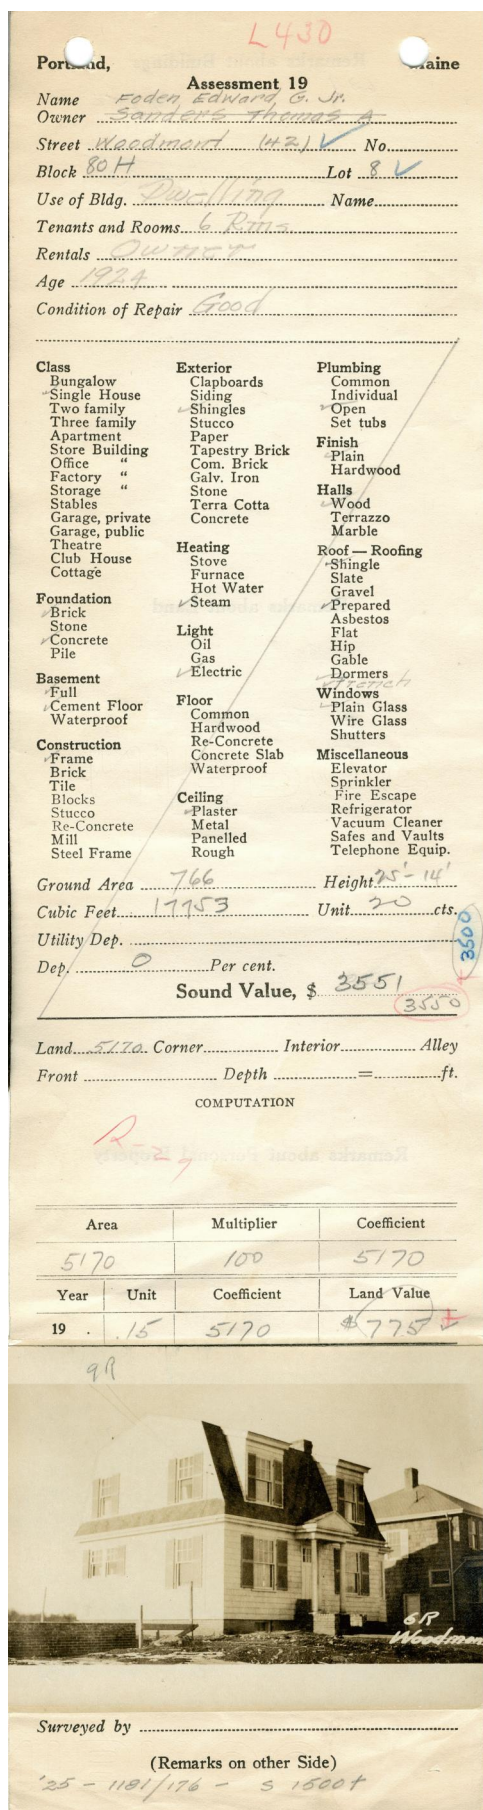 L430
Portland, Maine
Assessment 19
Name Foden Edward G. Jr.
Owner Sanders Thomas A
Street Woodmont (42) No.
Block 80H Lot 8
Use of Bldg. Dwelling Name
Tenants and Rooms 6 Rms
Rentals Owner
Age 1924
Condition of Repair Good
Class
Bungalow
Single House
Two family
Three family
Apartment
Store Building
Office "
Factory "
Storage "
Stables
Garage, private
Garage, public
Theatre
Club House
Cottage
Foundation
Brick
Stone
Concrete
Pile
Basement
Full
Cement Floor
Waterproof
Construction
Frame
Brick
Tile
Blocks
Stucco
Re-Concrete
Mill
Steel Frame
Exterior
Clapboards
Siding
Shingles
Stucco
Paper
Tapestry Brick
Com. Brick
Galv. Iron
Stone
Terra Cotta
Concrete
Heating
Stove
Furnace
Hot Water
Steam
Light
Oil
Gas
Electric
Floor
Common
Hardwood
Re-Concrete
Concrete Slab
Waterproof
Ceiling
Plaster
Metal
Panelled
Rough
Plumbing
Common
Individual
Open
Set tubs
Finish
Plain
Hardwood
Halls
Wood
Terrazzo
Marble
Roof — Roofing
Shingle
Slate
Gravel
Prepared
Asbestos
Flat
Hip
Gable
Dormers
French
Windows
Plain Glass
Wire Glass
Shutters
Miscellaneous
Elevator
Sprinkler
Fire Escape
Refrigerator
Vacuum Cleaner
Safes and Vaults
Telephone Equip.
Ground Area 766 Height 25'-14'
Cubic Feet 17753 Unit 20 cts.
Utility Dep.
3500
Dep. 0 Per cent.
Sound Value, $ 3551
3550
Land 5170 Corner Interior Alley
Front Depth = ft.
COMPUTATION
R-27
Area Multiplier Coefficient
5170 100 5170
Year Unit Coefficient Land Value
19 . .15 5170 $775
9R
6R
Woodmon
Surveyed by
(Remarks on other Side)
'25 - 1181/176 - S 1500+